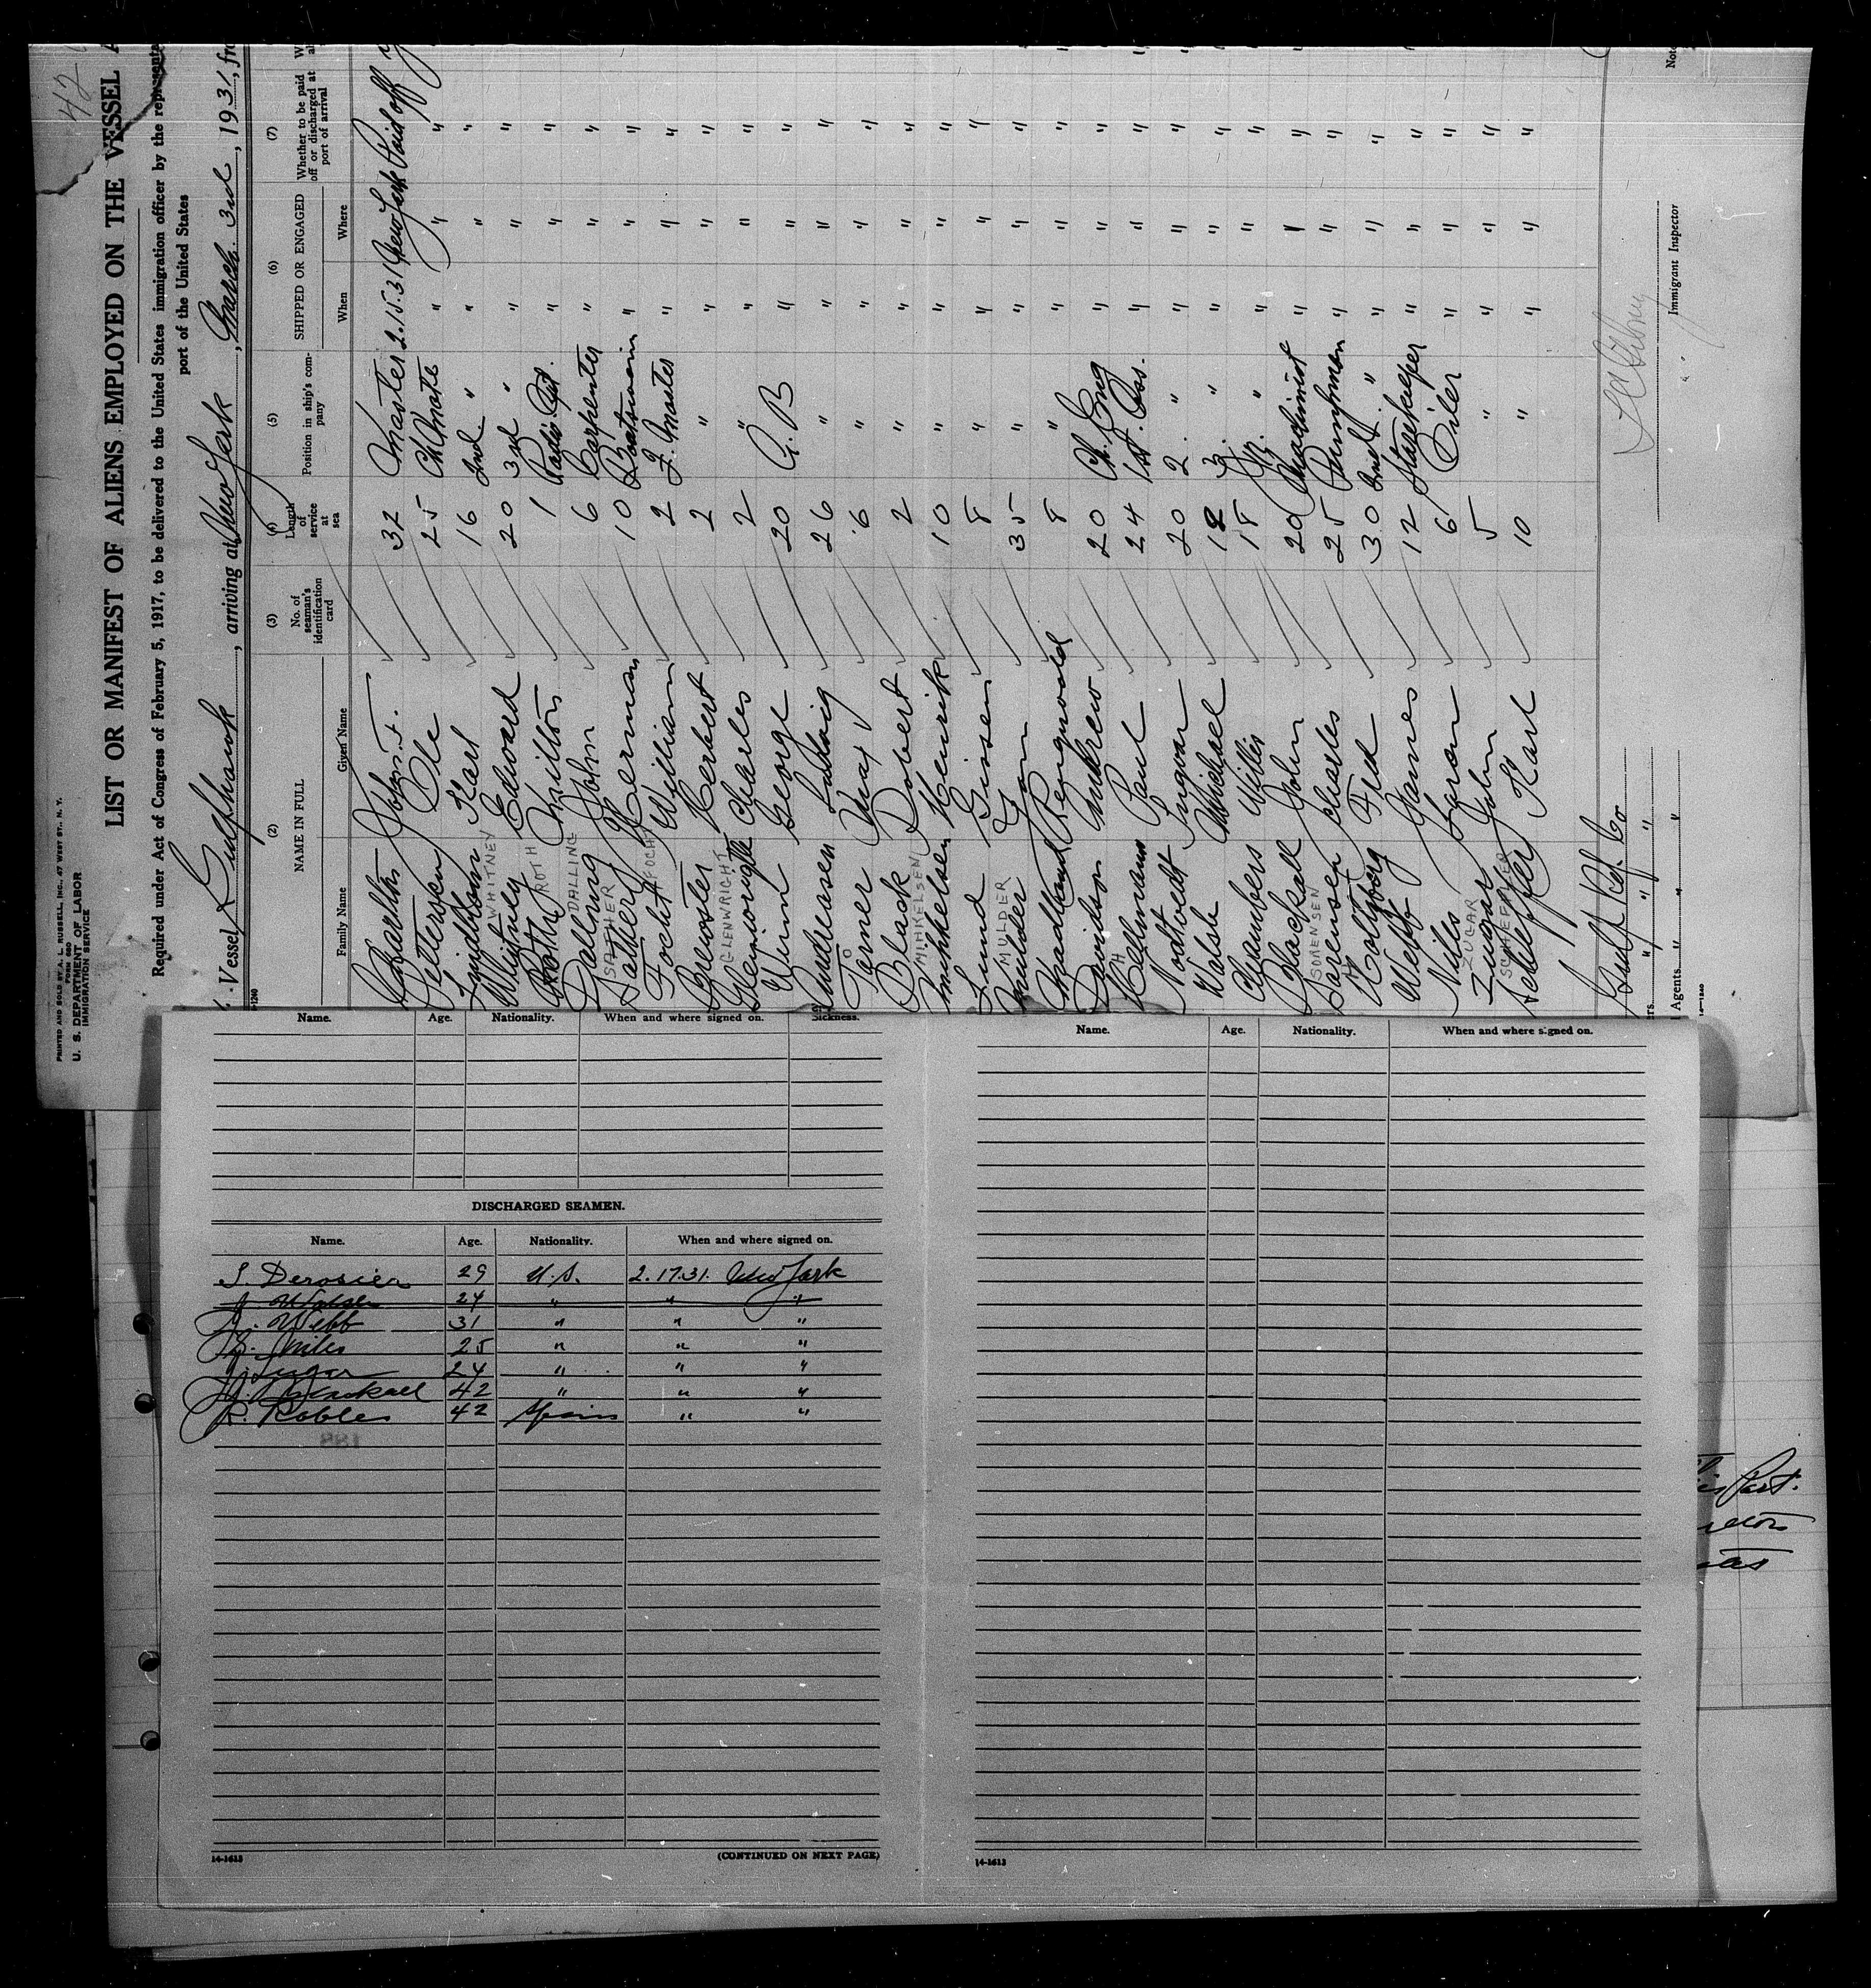 42
PRINTED AND SOLD BY A. L. RUSSELL, INC., 47 WEST ST., N. Y.
FORM 680
U. S. DEPARTMENT OF LABOR
IMMIGRATION SERVICE
LIST OR MANIFEST OF ALIENS EMPLOYED ON THE VESSEL
Required under Act of Congress of February 5, 1917, to be delivered to the United States immigration officer by the
port of the United States
Vessel Gulfhawk, arriving at New York, March 3rd, 1931, fr
(2) (3) (4) (5) (6) (7)
NAME IN FULL No. of seaman's identification card Length of service at sea Position in ship's company SHIPPED OR ENGAGED Whether to be paid off or discharged at port of arrival
Family Name Given Name When Where
32 Master 2.15.31 New York Paid off
Pettersen Ole 25 Ch Mate " " "
Lindblom Karl 16 2nd " " " "
Whitney WHITNEY Edward 20 3rd " " " "
Roth ROTH Milton 1 Radio Opt. " " "
Dalling DALLING John 6 Carpenter " " "
Sathery SATHER Herman 10 Boatswain " " "
Focht FOCH William 2 Q. Master " " "
Brewster Herbert 2 " " " "
Glenwright GLENWRIGHT Charles 2 " " " "
Winn George 20 A. B " " "
Andreasen Ludwig 26 " " " "
Torner Max 6 " " " "
Black Robert 2 " " " "
Mihkelsen MIHKELSEN Henrik 10 " " " "
Lund Gissen 8 " " " "
Mulder MULDER Yon 35 " " " "
Madland Reignwald 8 " " " "
Davidson Andrew 20 Ch. Eng " " "
Hellmann Paul 24 1st. Ass. " " "
Nodtvedt Ingvar 20 2. " " " "
Walsh Michael 12 3. " " " "
Chambers Willis 18 Jr. " " " "
Blackall John 20 Machinist " " "
Sorensen SORENSEN Charles 25 Pumpman " " "
Holtborg Fred 30 2nd. " " " "
Webb James 12 Storekeeper " " "
Niles Loron 6 Oiler " " "
Zugar ZUGAR John 5 " " " "
Scheffer SCHEFFER Karl 10 " " " "
Gulf Ref. Co
Agents
Immigrant Inspector
Note
14-1240
Name. Age. Nationality. When and where signed on. Sickness.
DISCHARGED SEAMEN.
Name. Age. Nationality. When and where signed on.
S. Derosier 29 U.S. 2.17.31. New York
J. Walsh 24 " " "
J. Webb 31 " " "
L. Niles 25 " " "
J. Zugar 24 " " "
J. Blackall 42 " " "
R. Robles 42 Spain " "
14-1613
(CONTINUED ON NEXT PAGE)
Name. Age. Nationality. When and where signed on.
14-1613
Port.